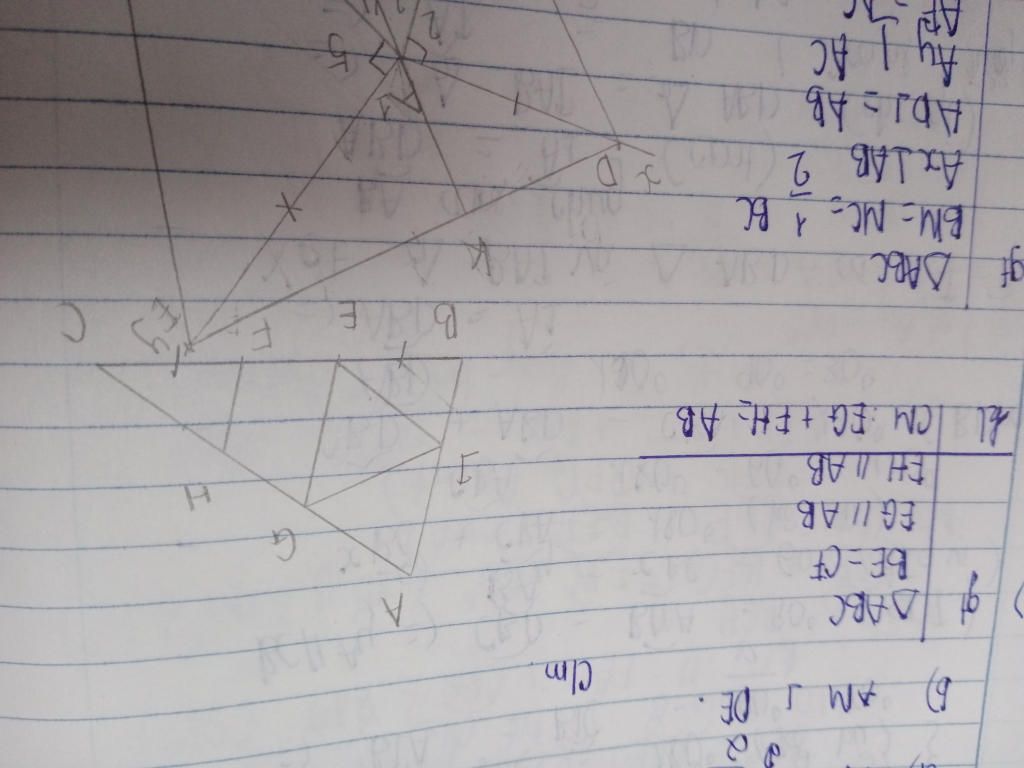 b) AM ⊥ DE.
C/m.
gt ΔABC
BE = CF
EG // AB
FH // AB
kl CM: EG + FH = AB
A
G
H
I
B E F C
gt ΔABC
BM = MC = 1/2 BC
Ax ⊥ AB
AD = AB
Ay ⊥ AC
AE = AC
E y
K
x
D
A 1
5
2